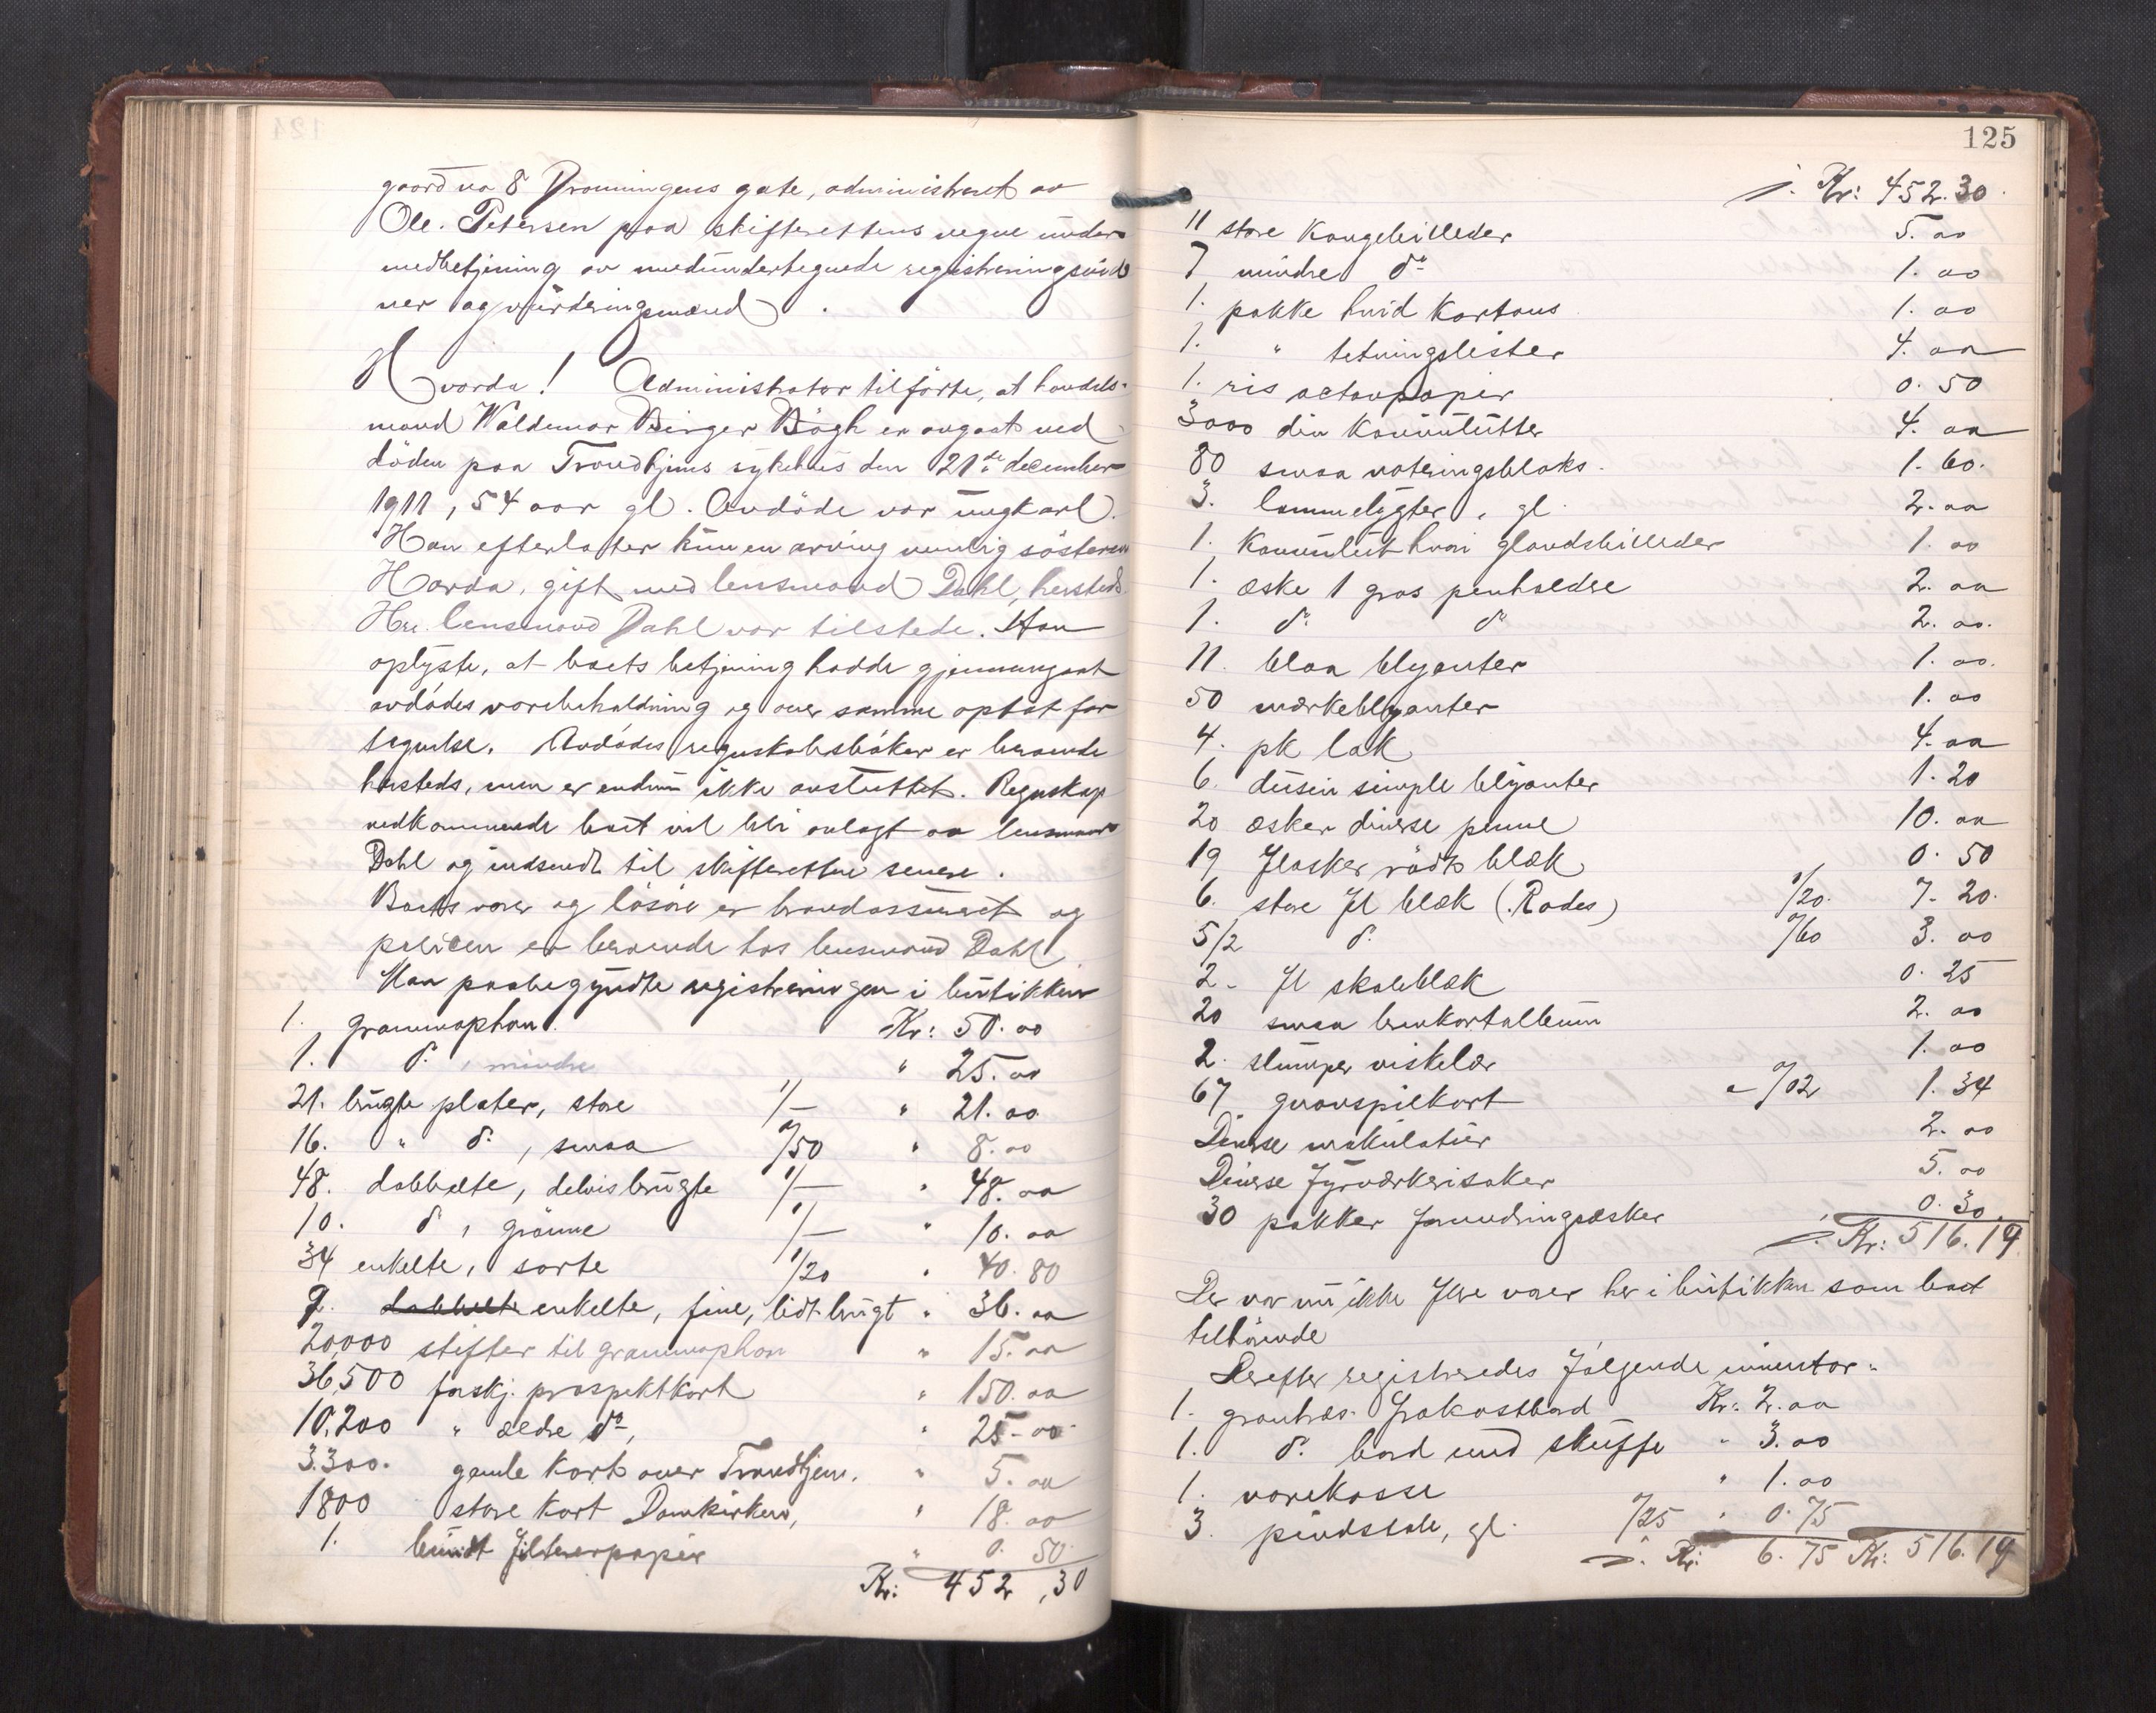 gaard no 8 Dronningens gate, administreret av
Ole. Petersen paa skifterettens vegne under
medbetjening av medundertegnede registreringsvid
ner og vurderingsmænd.
Hvorda! Administrator tilförte, at handels-
mand Waldemar Birger Bögh er avgaat ved
döden paa Trondhjems sykehus den 21de december
1911, 54 aar gl. Avdöde var ungkarl.
Han efterlater kun en arving nemlig sösteren
Harda, gift med lensmand Dahl, hersteds
Hr. lensmand Dahl var tilstede. Han
oplyste, at boets betjening hadde gjennemgaat
avdödes varebeholdning og over samme optat for
tegnelse. Avdödes regnskabsböker er beroende
hersteds, men er endnu ikke avsluttet. Regnskap
vedkommende boet vil bli avlagt av lensmand
Dahl og indsendt til skifteretten senere.
Boets varer og lösöre er brandassureret og
policen er beroende hos lensmand Dahl.
Man paabegyndte registreringen i butikken
1. grammophon. Kr: 50.00
1. do, mindre " 25.00
21. brugte plater, store 1/- " 21.00
16. " do, smaa 0/50 " 8.00
48. dobbelte, delvis brugte 1/- " 48.00
10. do, grönne 1/- " 10.00
34 enkelte, sorte 1/20 " 40.80
9. dobbelte enkelte, fine, lidt brugt " 36.00
20,000 stifter til grammophon " 15.00
36,500 forskj. prospektkort " 150.00
10,200 " ældre do, " 25-00
3.300. gamle kort over Trondhjem. " 5.00
1800 store kort Domkirken, " 18.00
1. bundt filtrerpapir " 0.50
Kr: 452,30
125
Kr: 452.30
11 store Kongebilleder 5.00
7 mindre do 1.00
1. pakke hvid Kartons 1.00
1. " tetningslister 4.00
1. ris octavpapir 0.50
3000 div Konvolutter 4.00
80 smaa noteringsbloks. 1.60.
3. lommelygter, gl. 2.00
1. Konvolut hvori glandsbilleder 1.00
1. æske 1 gros penholdre 2.00
1. do do 2.00.
11. blaa blyanter 1.00.
50 merkeblyanter 1.00
4. pk lak 4.00
6. dusin simple blyanter 1.20
20 æsker diverse penne 10.00
19 flasker rödt blæk 0.50
6. store fl blæk (Rodes) 1/20. 7-20.
5/2 do. 0/60 3.00
2- fl skoleblæk 0.25
20 smaa brevkortalbum 2.00
2. slumper viskelær 1.00
67 gnavspilkort 0/02 1.34
Diverse makulatur 2.00
Diverse fyrværkerisaker 5.00
30 pakker forundringsæsker 0.30
Kr: 516.19
Der var nu ikke flere varer her i butikken som boet
tilhörende
Derefter registreredes følgende inventar:
1. grantræs frokostbord Kr: 2.00
1. do. bord med skuffe " 3.00
1. varekasse " 1.00
3. pindstole, gl. 0/25 " 0.75
Kr: 6.75 Kr: 516.19